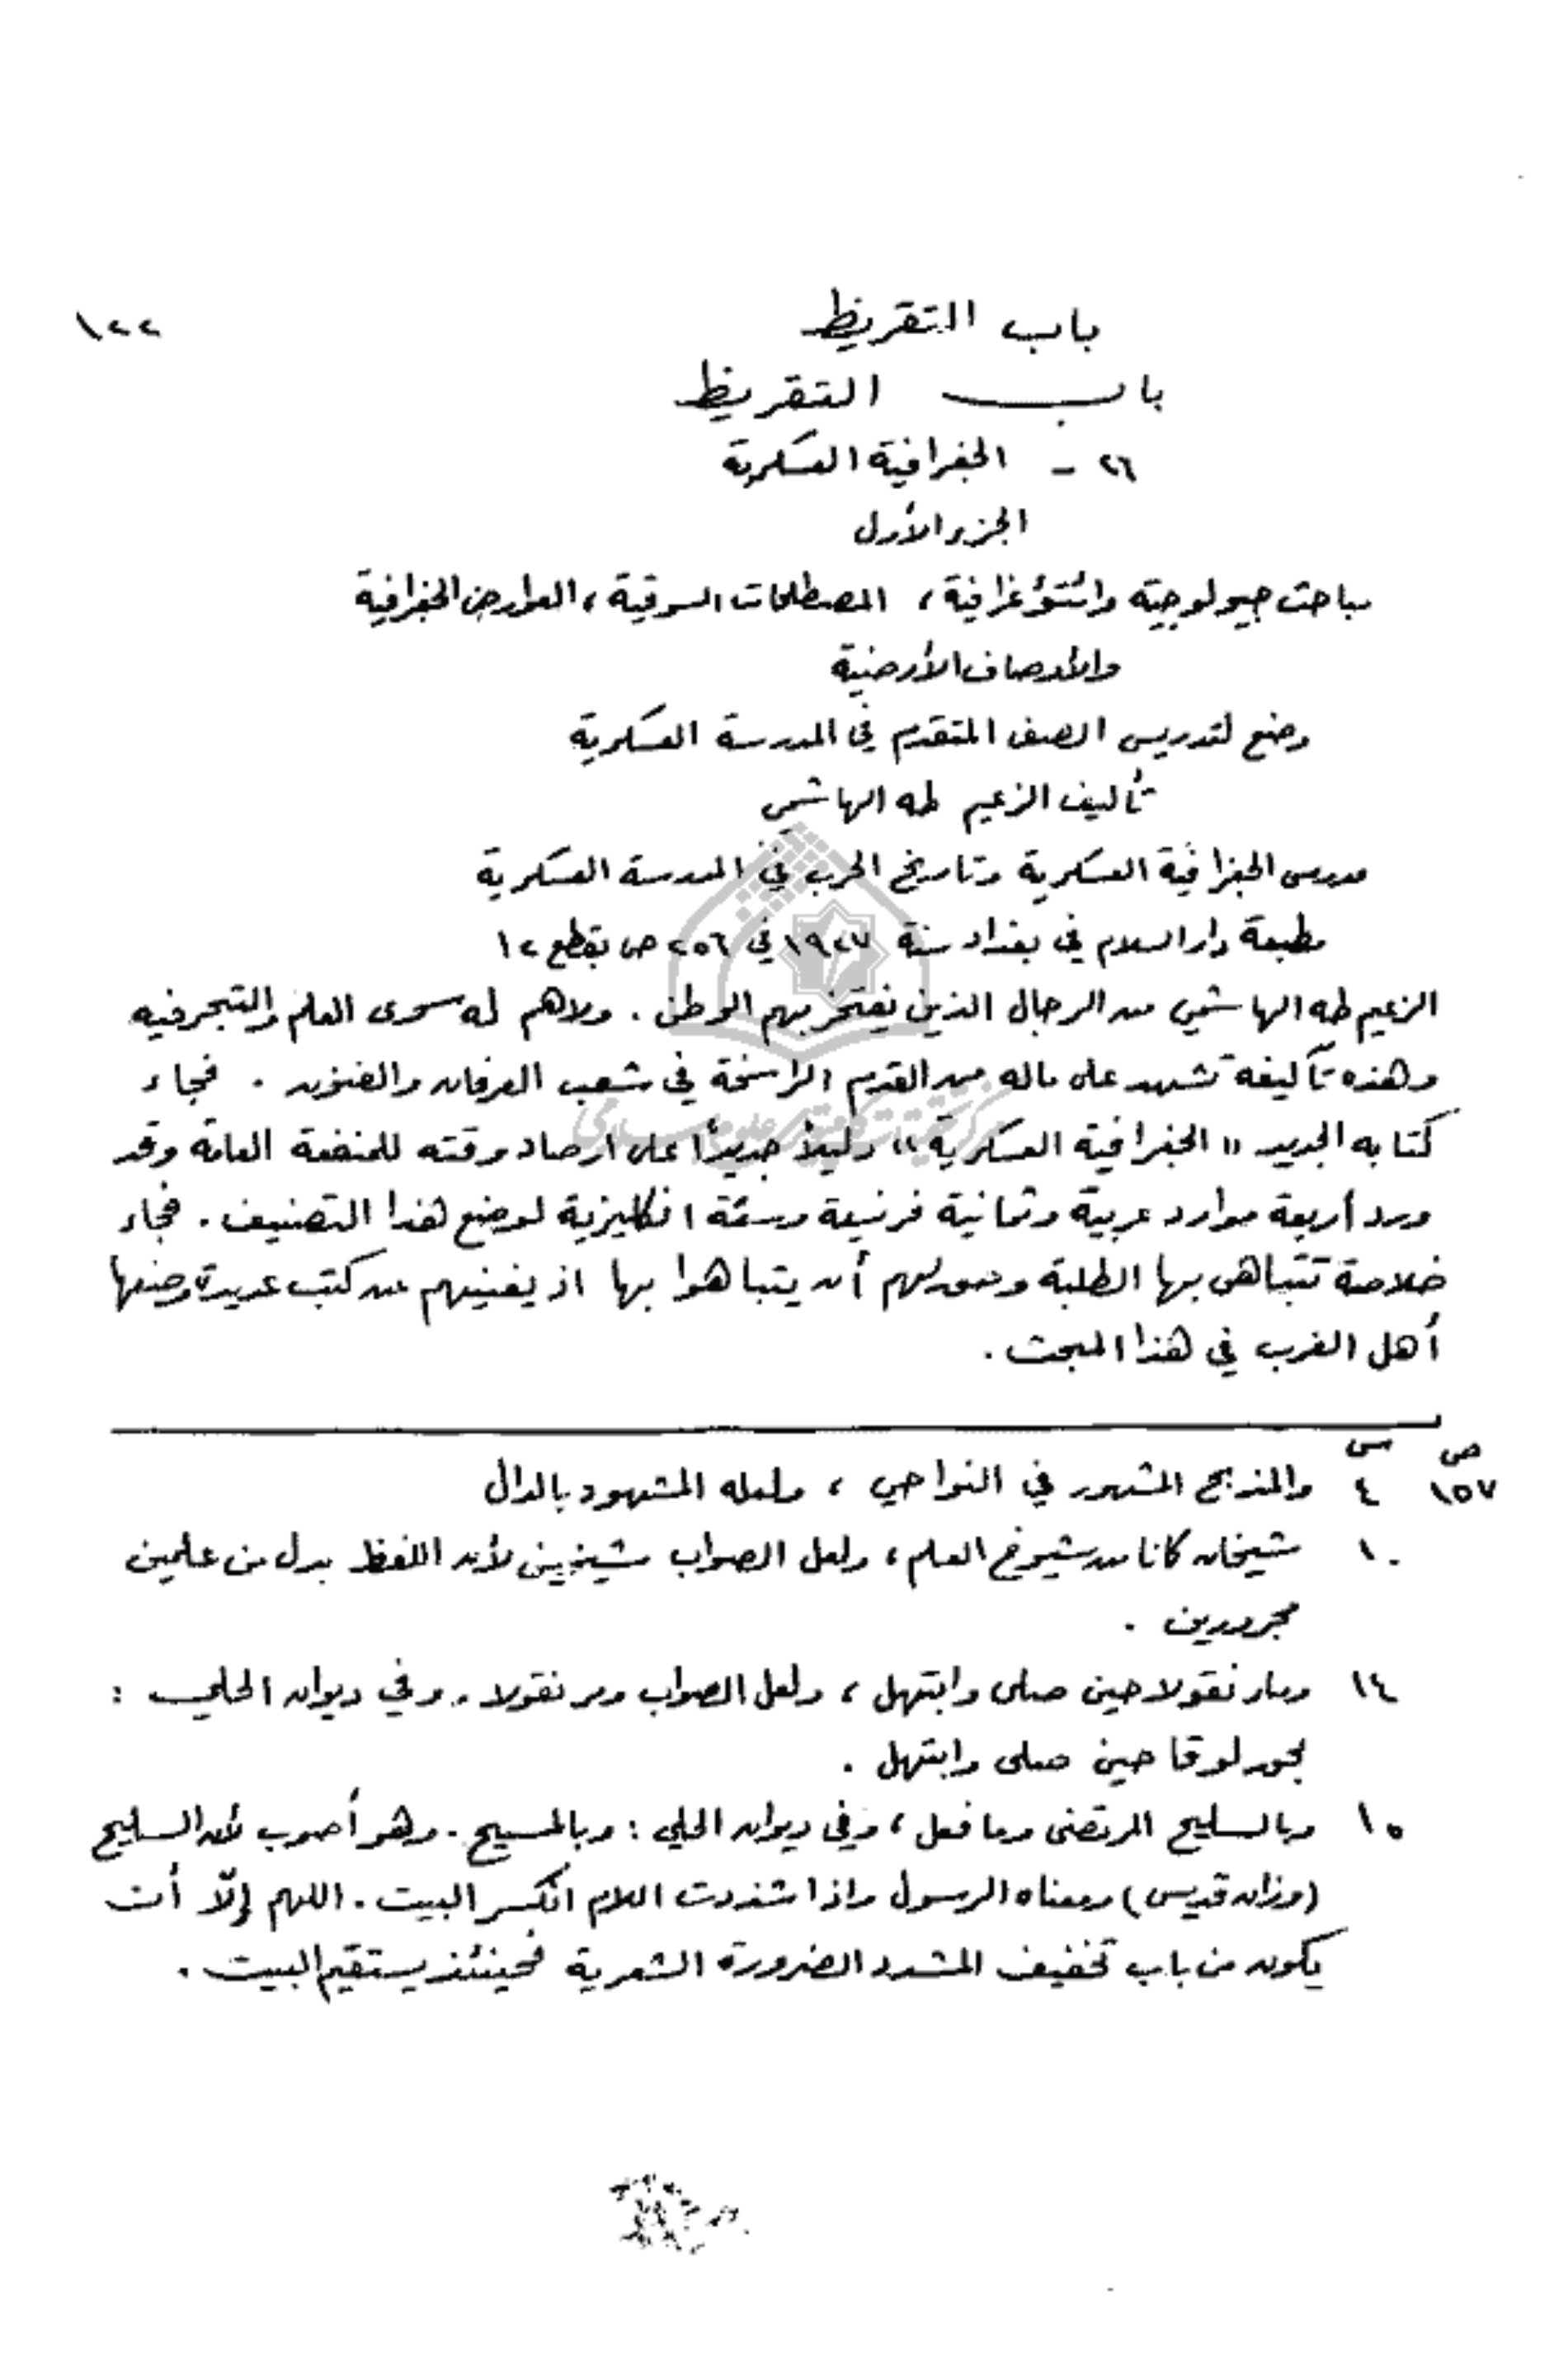 باب التقريظ ١٢٢
باب التقريظ
٢٦ - الجغرافية العسكرية
الجزء الأول
مباحث جيولوجية واثنوغرافية، المصطلحات السوقية، العوارض الجغرافية
والأوصاف الأرضية
وضع لتدريس الصف المتقدم في المدرسة العسكرية
تأليف الزعيم طه الهاشمي
مدرس الجغرافية العسكرية وتاريخ الحرب في المدرسة العسكرية
مطبعة دار السلام في بغداد سنة ١٩٢٧ في ٢٥٦ ص بقطع ١٢
الزعيم طه الهاشمي من الرجال الذين يفتخر بهم الوطن . ولا هم له سوى العلم والتبحر فيه
وهذه تآليفه تشهد على ماله من القدم الراسخة في شعب العرفان والفنون . فجاء
كتابه الجديد «الجغرافية العسكرية» دليلاً جديدًا على ارصاد وقته للمنفعة العامة وقد
ورد أربعة موارد عربية وثمانية فرنسية وستة انكليزية لوضع هذا التصنيف . فجاء
خلاصة تتباهى بها الطلبة وحق لهم أن يتباهوا بها اذ يغنيهم عن كتب عديدة وضعها
أهل الغرب في هذا المبحث .
ص س
١٥٧ ٤ والمذبح المشهور في النواحي ، ولعله المشهود بالدال
١٠ شيخان كانا من شيوخ العلم ، ولعل الصواب شيخين لأن اللفظ بدل من علمين
مجرورين .
١٤ ومار نقولا حين صلى وابتهل ، ولعل الصواب ومر نقولا . وفي ديوان الحلي :
بحق لوقا حين صلى وابتهل .
١٥ وبالسليح المرتضى وما فعل ، وفي ديوان الحلي : وبالمسيح . وهو أصوب لأن السليح
(وزان قديس) ومعناه الرسول واذا شددت اللام انكسر البيت . اللهم إلّا أن
يكون من باب تخفيف المشدد الضرورة الشعرية فحينئذ يستقيم البيت .